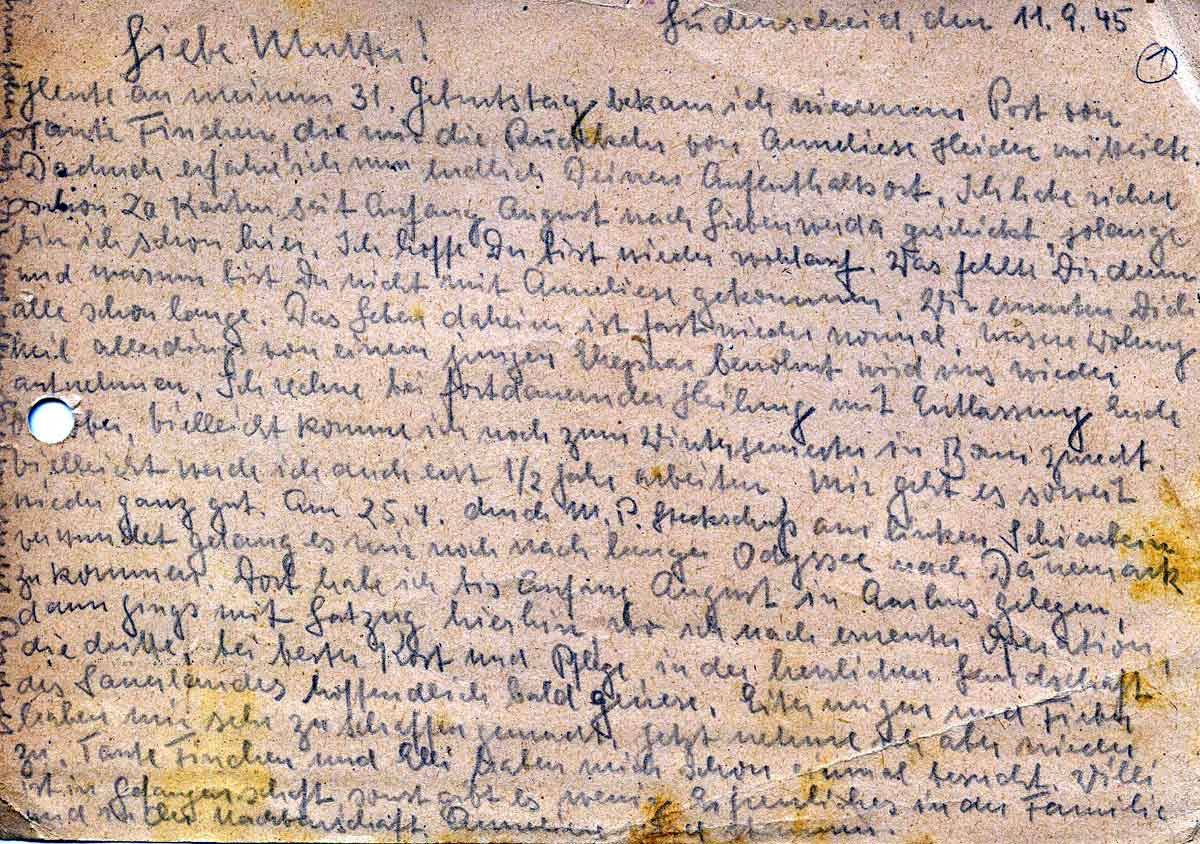 Lüdenscheid, den 11.9.45
1
Liebe Mutter!
Heute an meinem 31. Geburtstag bekam ich wiederum Post von
Tante Finchen, die mir die Rückkehr von Anneliese Heider mitteilte
Dadurch erfahre ich nun endlich Deinen Aufenthaltsort. Ich habe sicher
schon 20 Karten seit Anfang August nach Liebenwerda geschickt, solange
bin ich schon hier. Ich hoffe Du bist wieder wohlauf. Was fehlte Dir denn
und warum bist Du nicht mit Anneliese gekommen. Wir erwarten Dich
alle schon lange. Das Leben daheim ist fast wieder normal. Unsere Wohnung
weil allerdings von einem jungen Ehepaar bewohnt wird uns wieder
aufnehmen. Ich rechne bei fortdauernder Heilung mit Entlassung Ende
vielleicht komme ich noch zum Wintersemester in Bonn zurecht.
vielleicht werde ich auch erst 1/2 Jahr arbeiten. Mir geht es soweit
wieder ganz gut. Am 25.4. durch M.P. Steckschuß am linken Schienbein
verwundet gelang es mir noch nach langer Odyssee nach Dänemark
zu kommen. Dort habe ich bis Anfang August in Aarhus gelegen,
dann gings mit Laz.zug hierhin wo ich nach erneuter Operation,
die dritte, bei bester Kost und Pflege in der herrlichen Landschaft
des Sauerlandes hoffendlich bald genese. Eiterungen und Fieber
haben mir sehr zu schaffen gemacht, jetzt nehme ich aber wieder
zu. Tante Finchen und Elli haben mich schon einmal besucht. Willi
ist in Gefangenschaft sonst gibt es wenig Erfreuliches in der Familie
und Nachbarschaft.